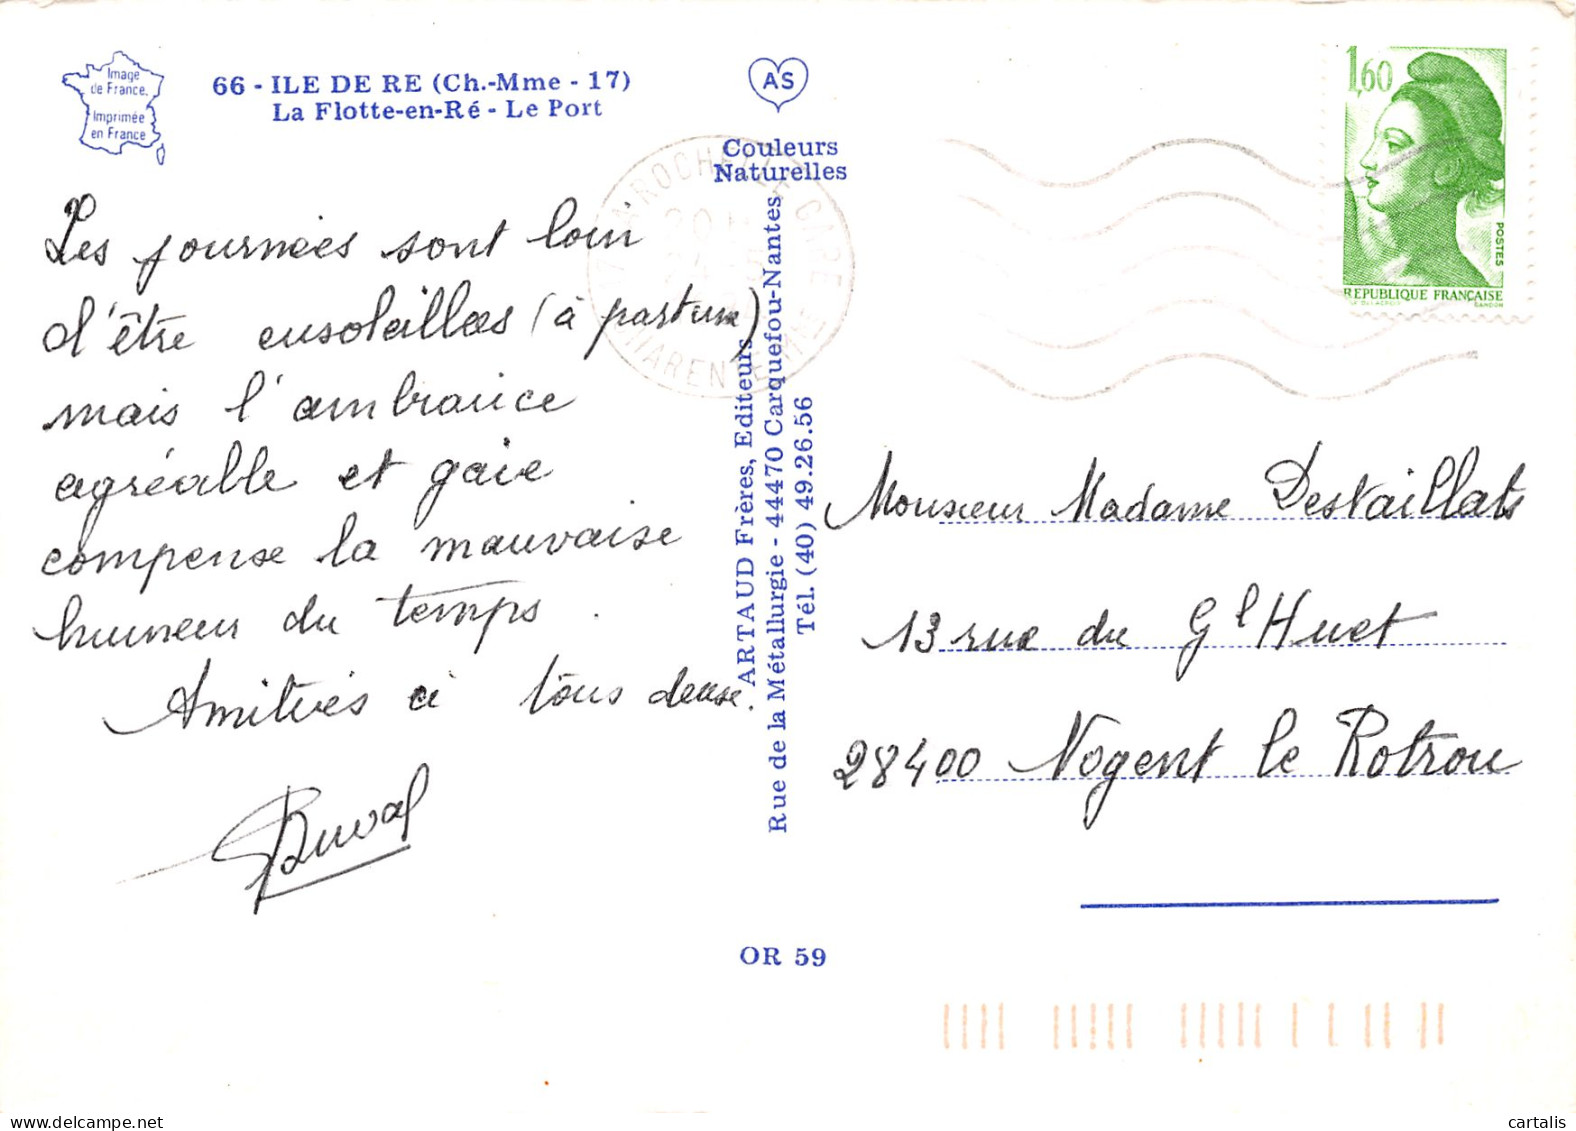 Image
de France.
Imprimée
en France
66 - ILE DE RE (Ch.-Mme - 17)
La Flotte-en-Ré - Le Port
AS
Couleurs
Naturelles
Les journées sont loin
d'être ensoleillées (à part une)
mais l'ambiance
agréable et gaie
compense la mauvaise
humeur du temps.
Amitiés à tous deux.
Duval
ARTAUD Frères, Editeurs
Rue de la Métallurgie - 44470 Carquefou-Nantes
Tél. (40) 49.26.56
OR 59
LA ROCHELLE CARE
CHARENTE MME
1,60
POSTES
REPUBLIQUE FRANÇAISE
GANDON
Monsieur Madame Destaillats
13 rue du Gl Huet
28400 Nogent le Rotrou
cartalis